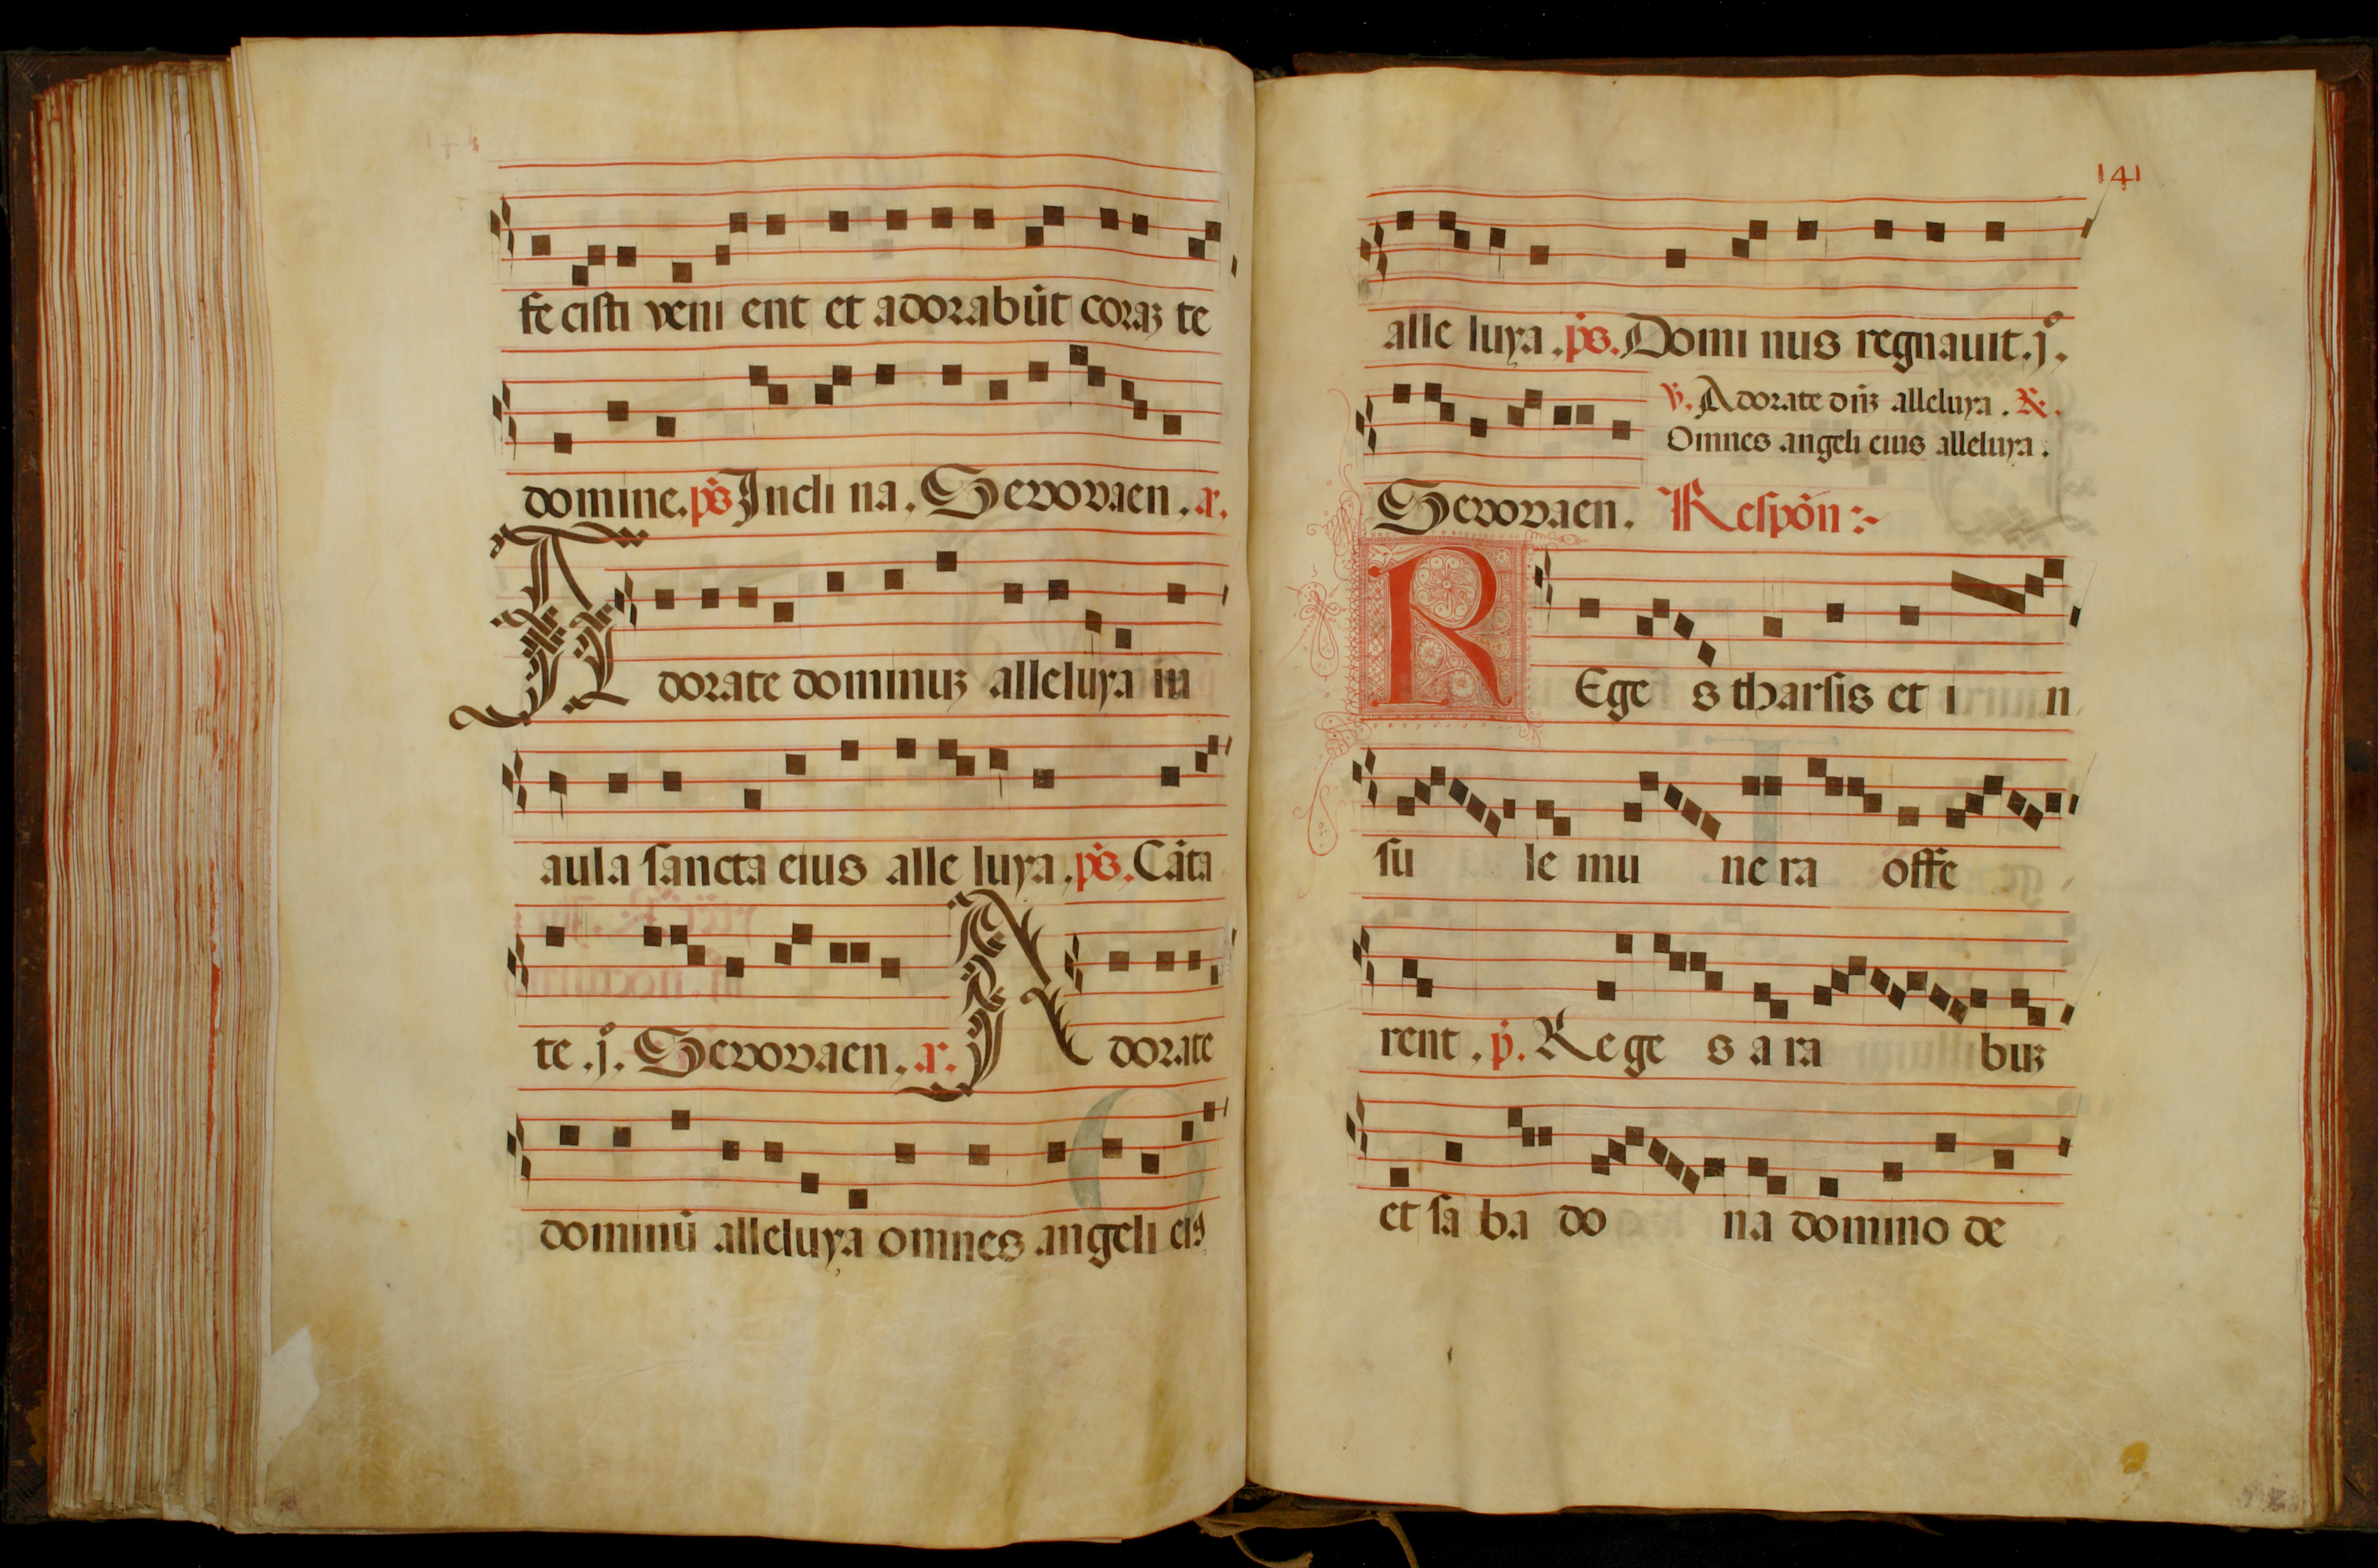 fecisti veni ent et adorabūt coraʒ te
domine. ps̄ Incli na. Sevovaen. a.
Adorate dominuʒ alleluya in
aula sancta eius alle luya. ps̄. Cāta
te .j. Sevovaen. a. Adorate
dominū alleluya omnes angeli eiꝰ
141
alle luya. ps̄. Domi nus regnauit. j.
℣. Adorate dn̄ʒ alleluya. ℟.
Omnes angeli eius alleluya.
Sevovaen. Respōn :-
REge s tharsis et i n
su le mu ne ra offe
rent. p̄. Rege s a ra buʒ
et sa ba do na domino de